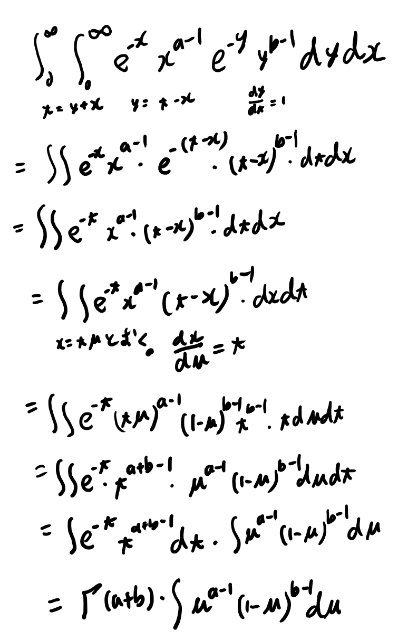 ∫₀^∞ ∫₀^∞ e^{-x} x^{a-1} e^{-y} y^{b-1} dy dx
t = y+x   y = t-x   dy/dt = 1
= ∫∫ e^{-x} x^{a-1} · e^{-(t-x)} · (t-x)^{b-1} · dt dx
= ∫∫ e^{-t} x^{a-1} · (t-x)^{b-1} · dt dx
= ∫∫ e^{-t} x^{a-1} (t-x)^{b-1} · dx dt
x = tμ   dx/dμ = t
= ∫∫ e^{-t} (tμ)^{a-1} (1-μ)^{b-1} t^{b-1} · t dμ dt
= ∫∫ e^{-t} · t^{a+b-1} · μ^{a-1} (1-μ)^{b-1} dμ dt
= ∫ e^{-t} t^{a+b-1} dt · ∫ μ^{a-1} (1-μ)^{b-1} dμ
= Γ(a+b) · ∫ μ^{a-1} (1-μ)^{b-1} dμ